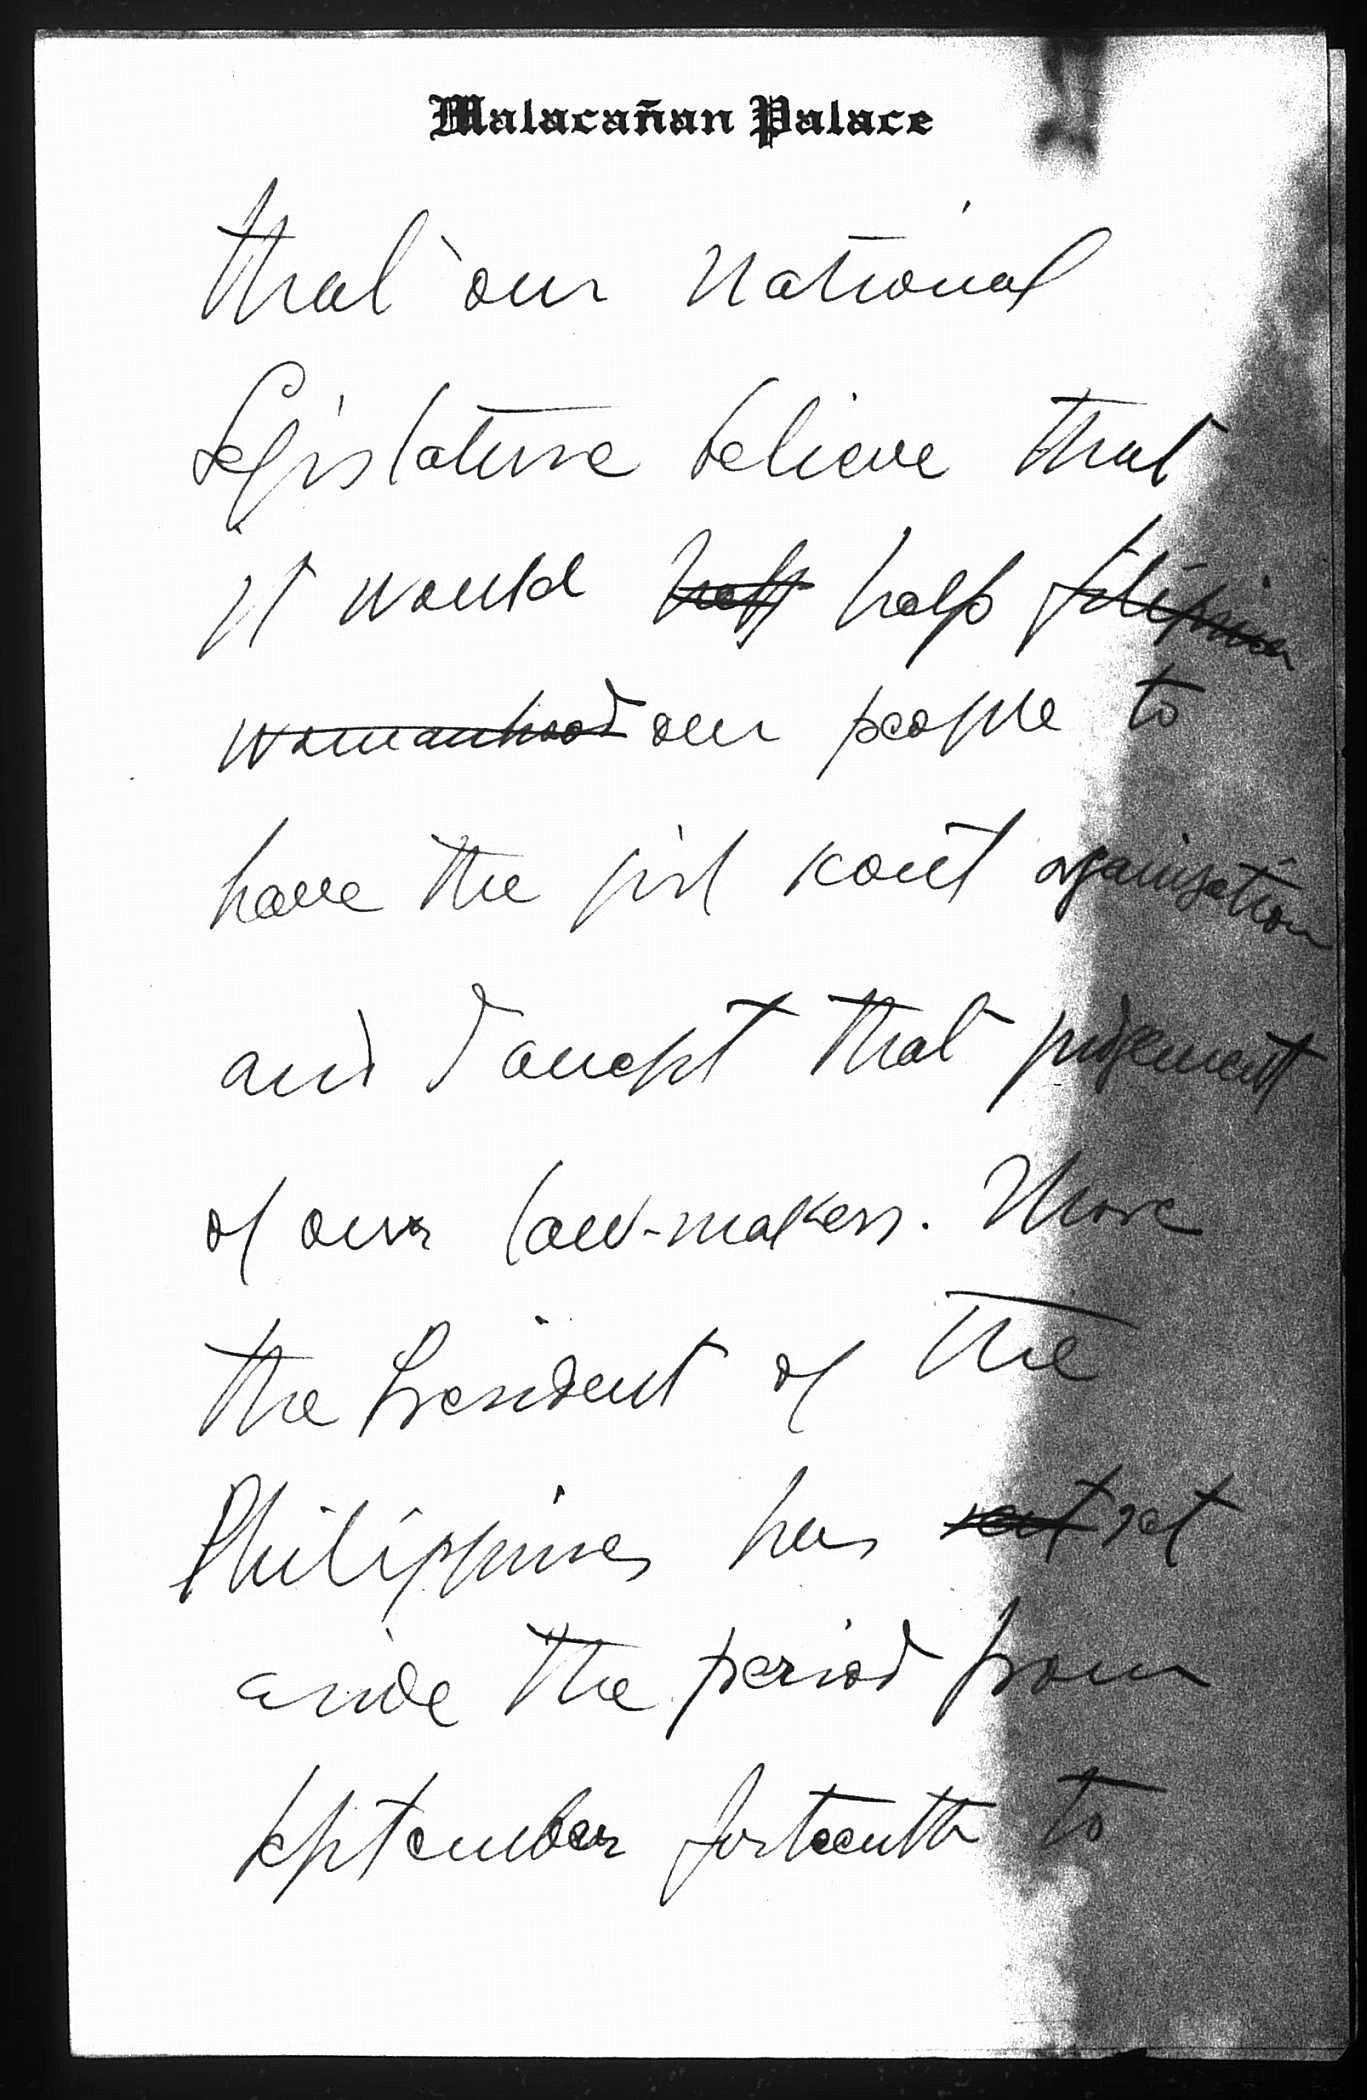 Malacañan Palace
that our National
Legislature believe that
it would help help filipino
womanhood our people to
have the girl scout organization
and I accept that judgement
of our law-makers. More
the President of the
Philippines has set set
aside the period from
September forteenth to